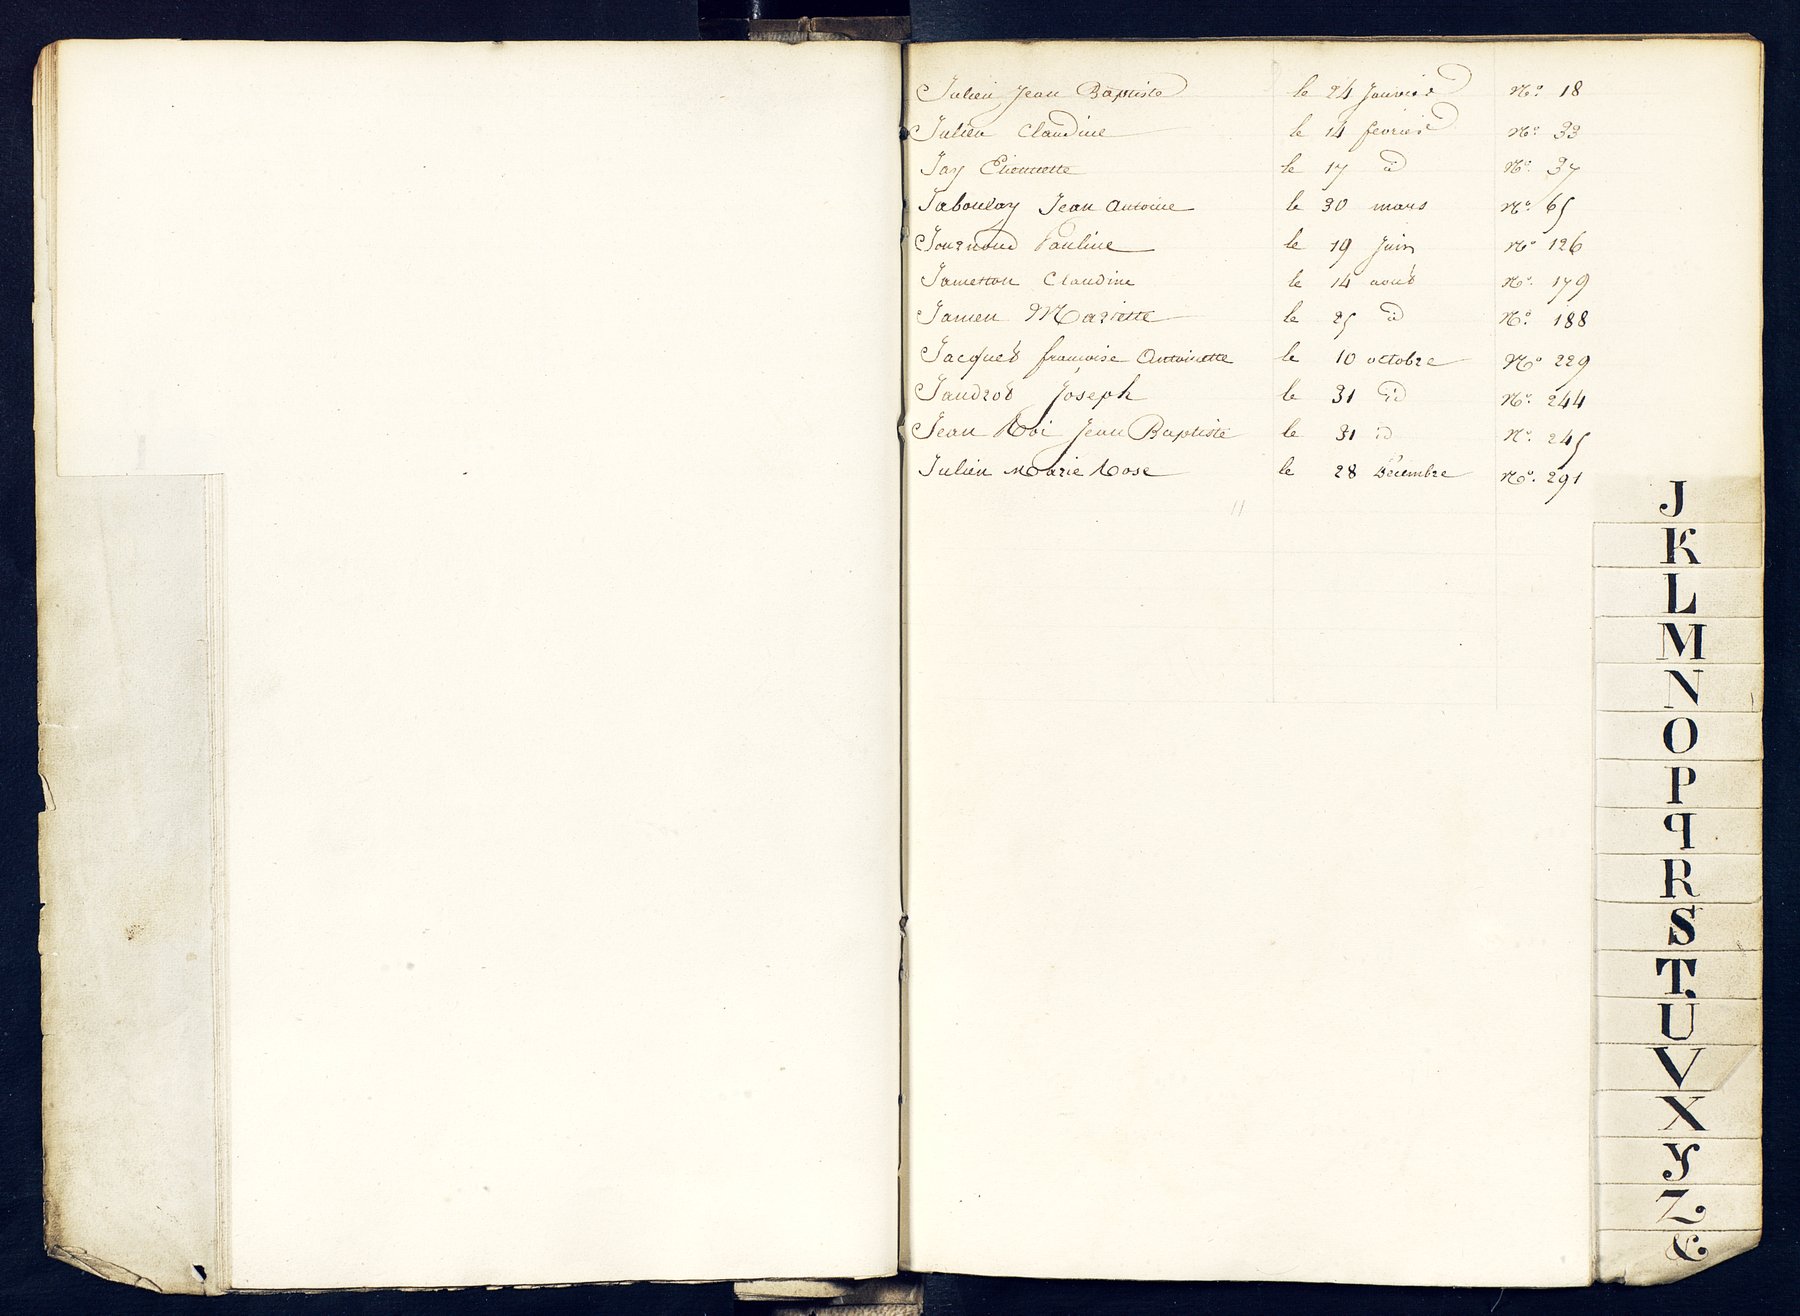 Julien Jean Baptiste le 24 Janvier N.o 18
Julien Claudine le 14 février N.o 33
Jay Etiennette le 17 id N.o 37
Jaboulay Jean Antoine le 30 mars N.o 65
Journoud Pauline le 19 Juin N.o 126
Jametton Claudine le 14 août N.o 179
Jamen Mariette le 25 id N.o 188
Jacquet françoise Antoinette le 10 octobre N.o 229
Jandrot Joseph le 31 id N.o 244
Jean Roi Jean Baptiste le 31 id N.o 245
Julien Marie Rose le 28 Décembre N.o 291
11
J
K
L
M
N
O
P
q
R
S
T.
U
V
X
Y
Z
&